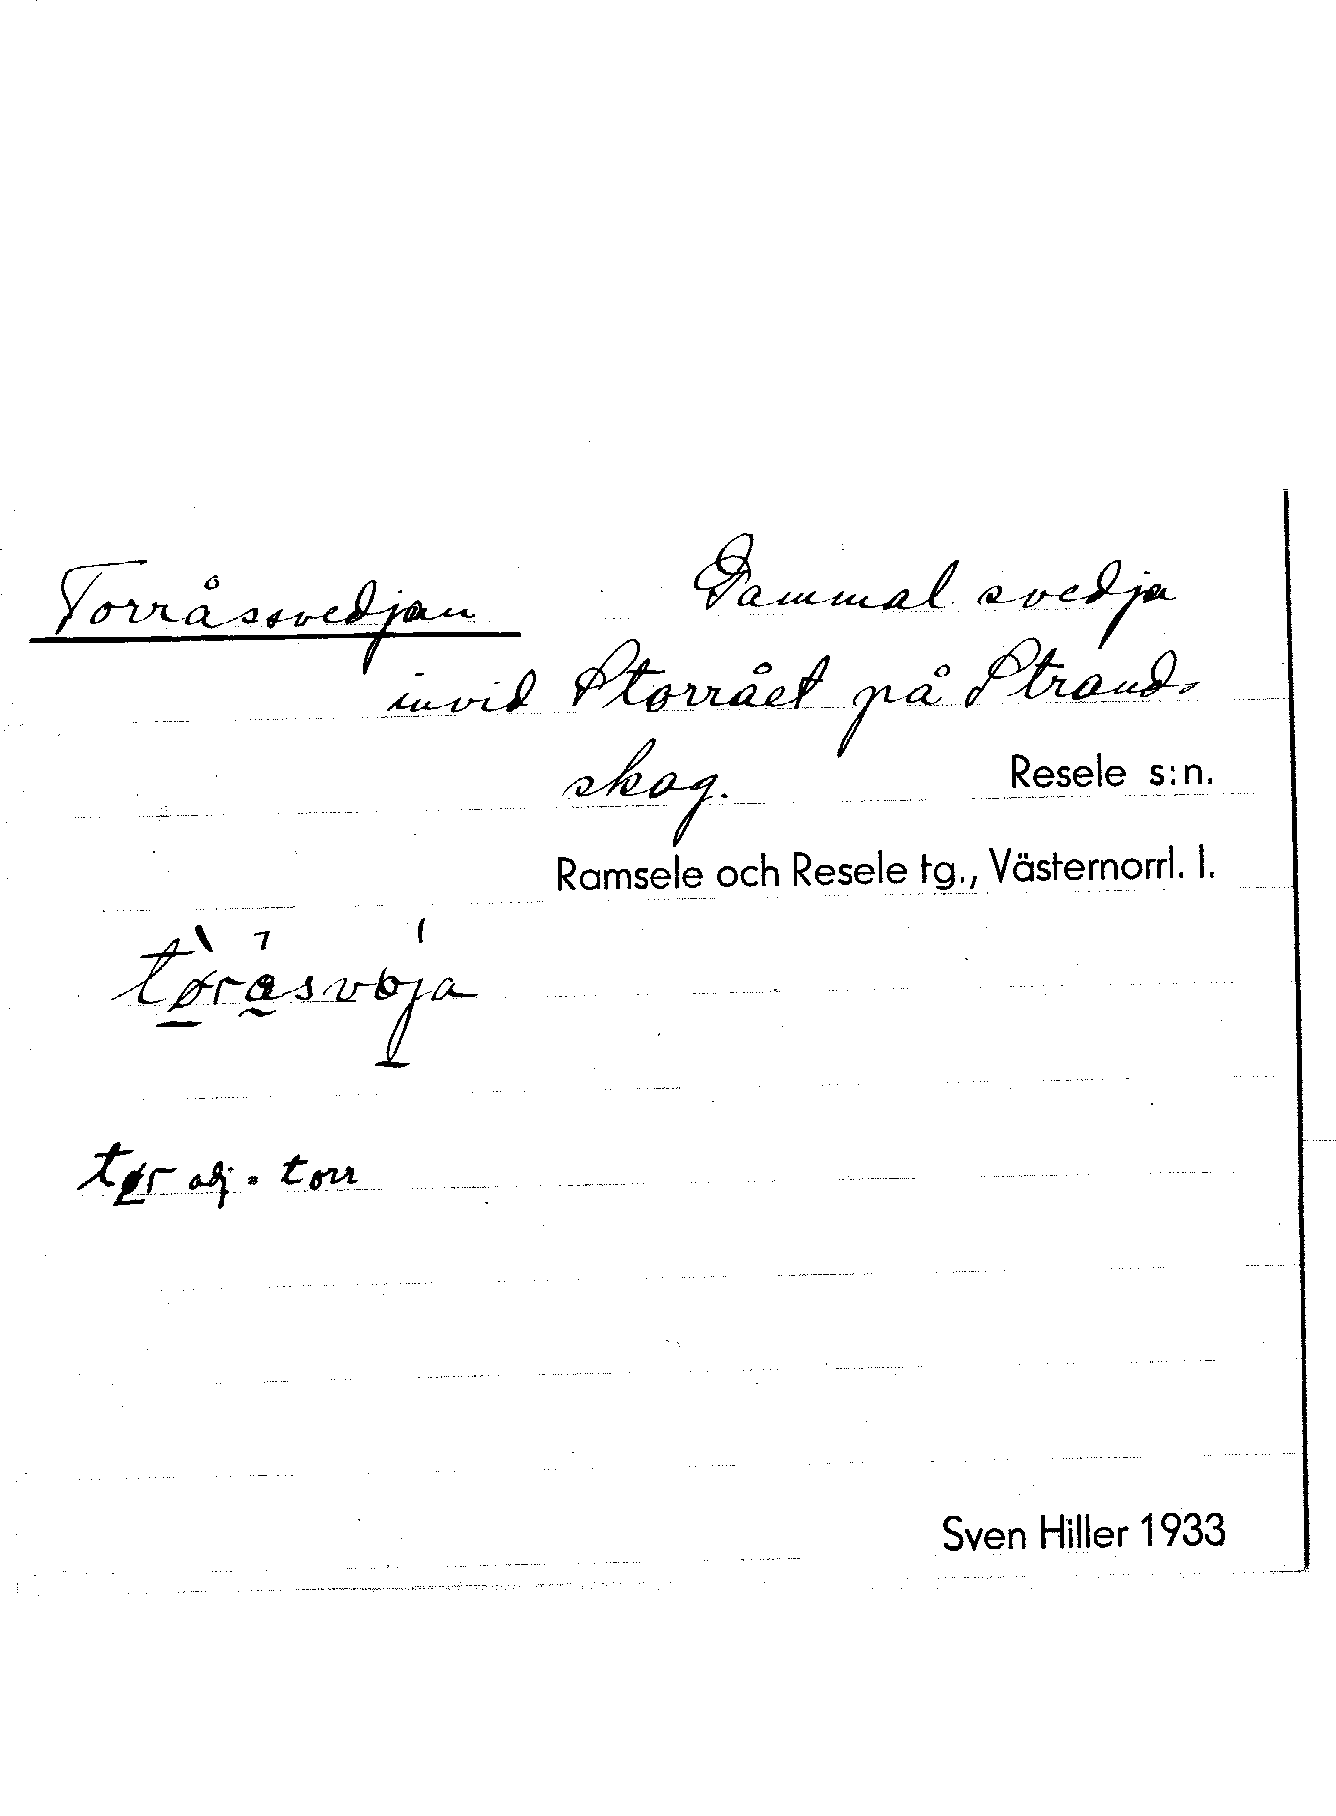 Torråssvedjan Gammal svedja
invid Storrået på Strand-
skog. Resele s:n.
Ramsele och Resele tg., Västernorrl. l.
tør adj. = torr
Sven Hiller 1933